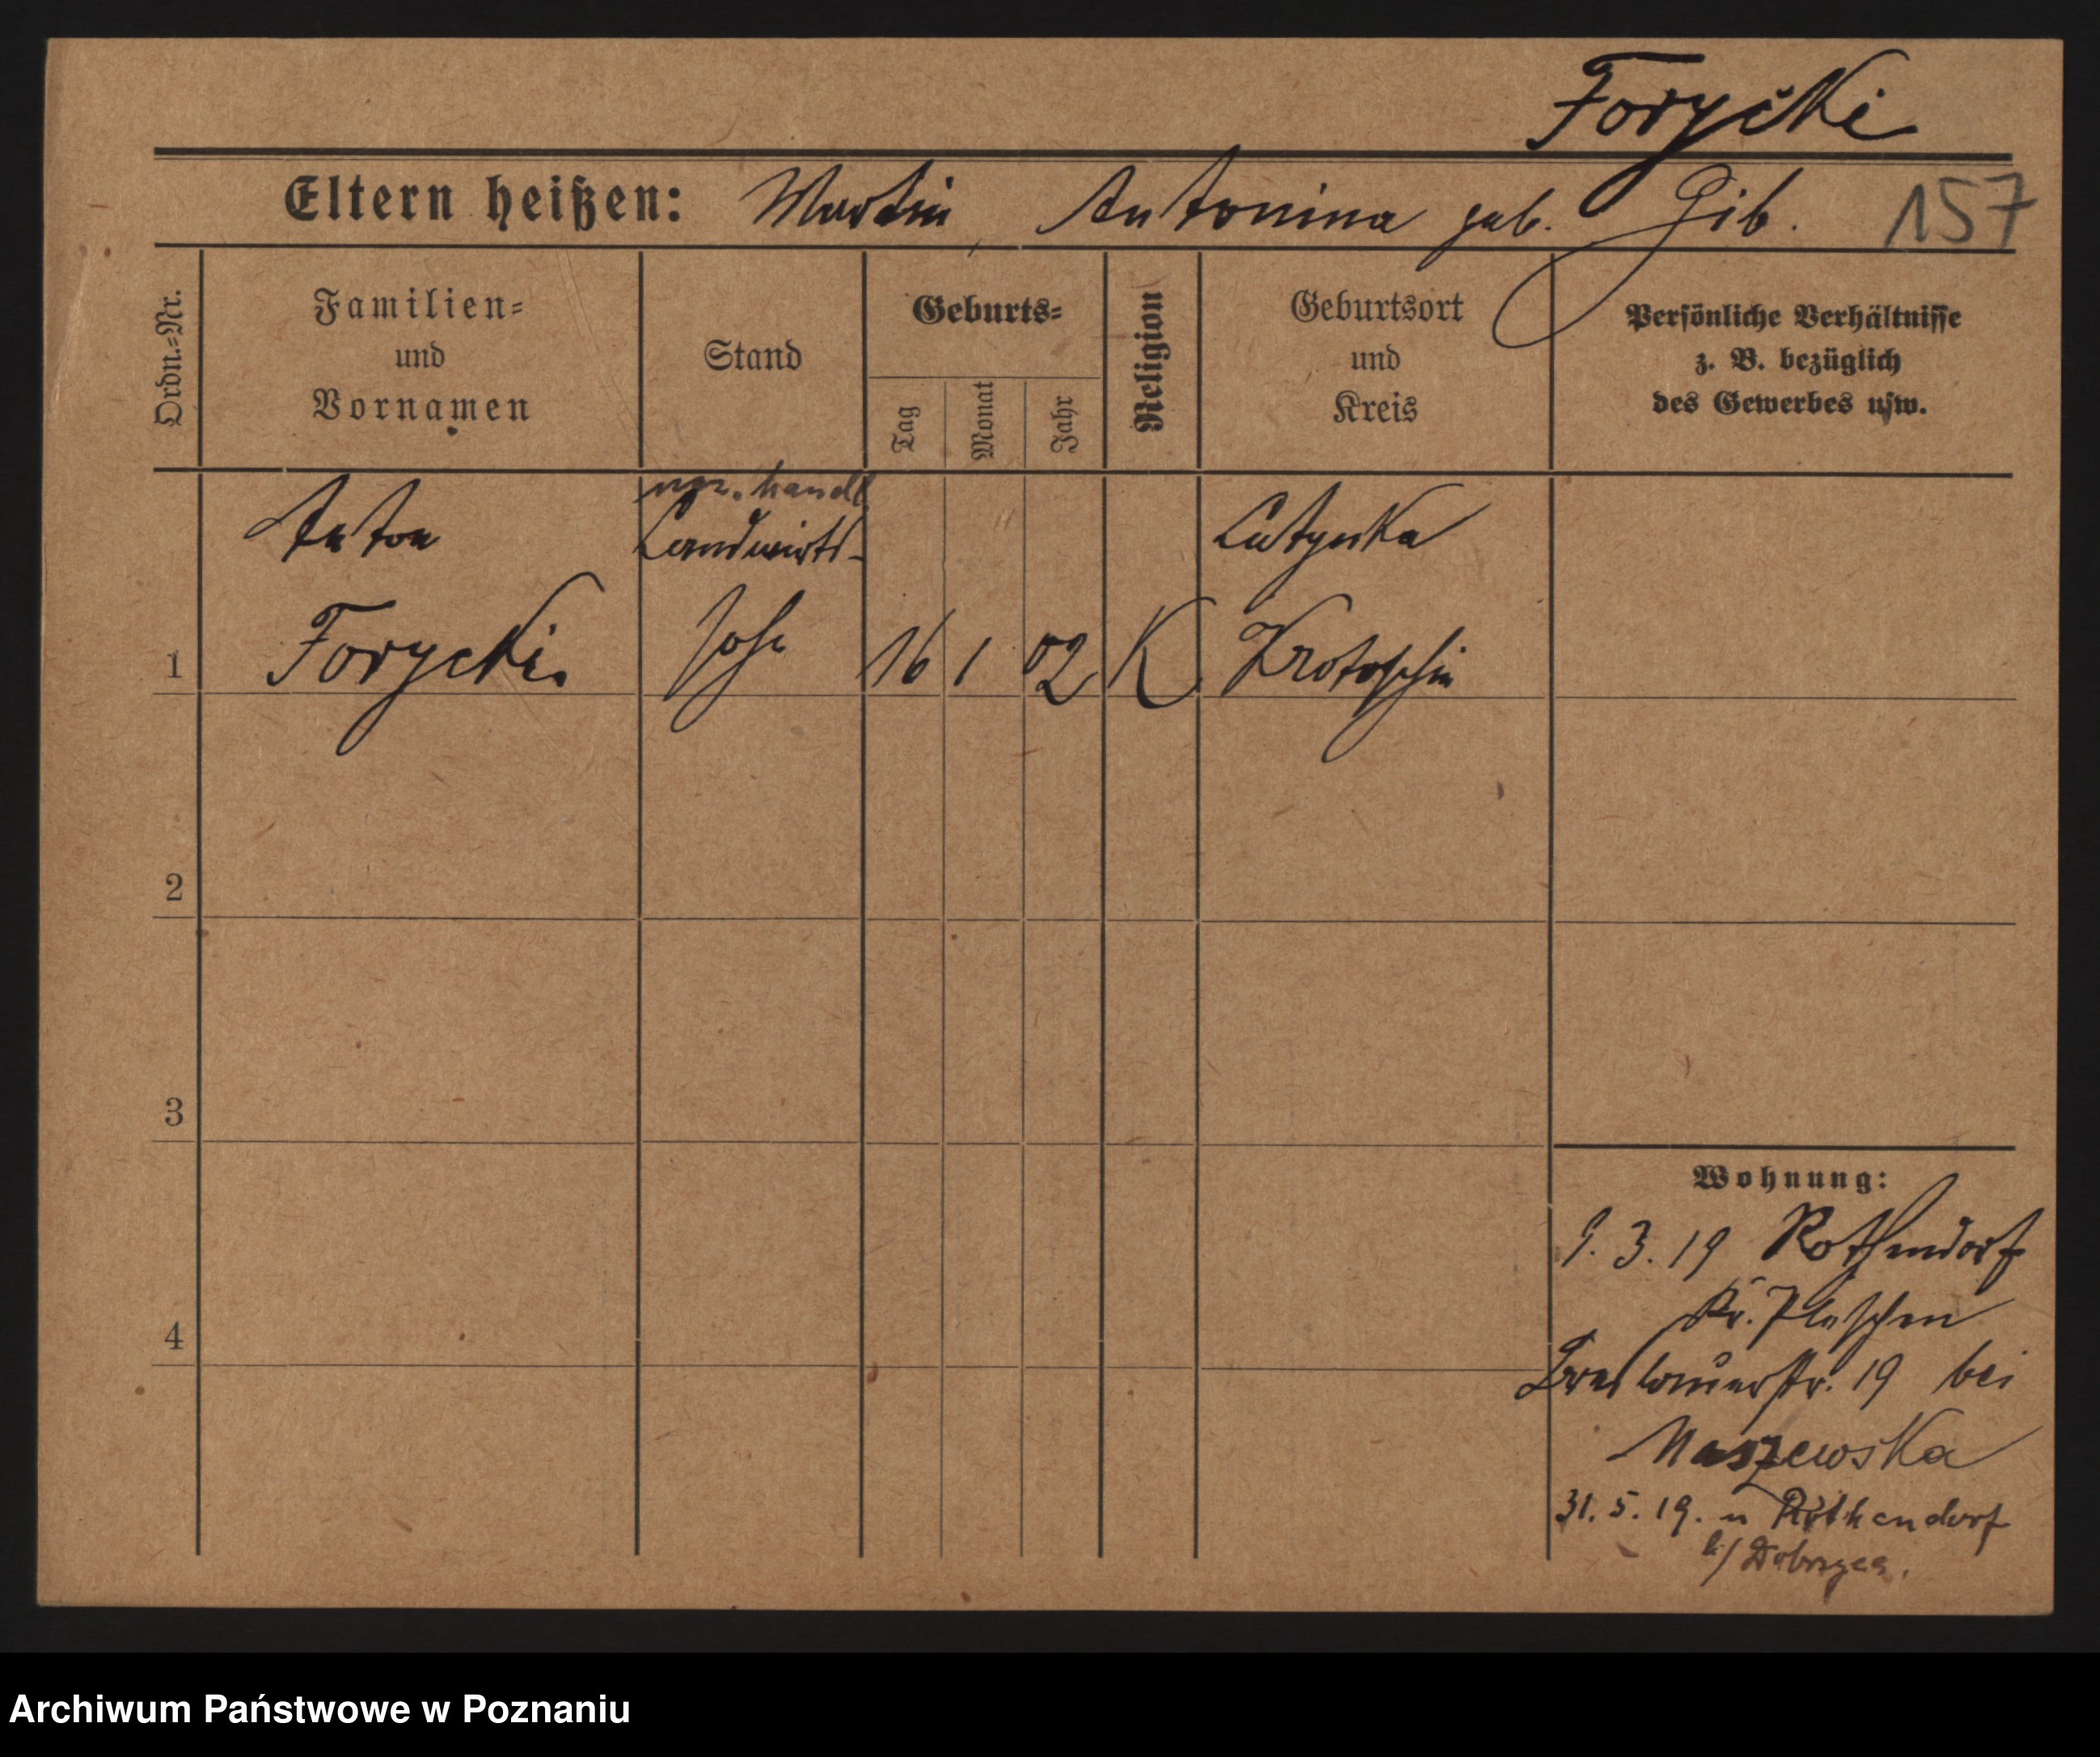 Forycki
Eltern heißen: Martin, Antonina geb. Gib. 157
Ordn.-Nr.
Familien-
und
Vornamen
Stand
Geburts-
Tag
Monat
Jahr
Religion
Geburtsort
und
Kreis
Persönliche Verhältnisse
z. B. bezüglich
des Gewerbes usw.
ucz. handl.
Anton Landwirts- Lutynka
1 Forycki. Sohn 16 1 02 K Krotoschin
2
3
4
Wohnung:
1. 3. 19 Rothendorf
Kr. Pleschen
Breslauerstr. 19 bei
Maszewska
31. 5. 19. n Rothendorf